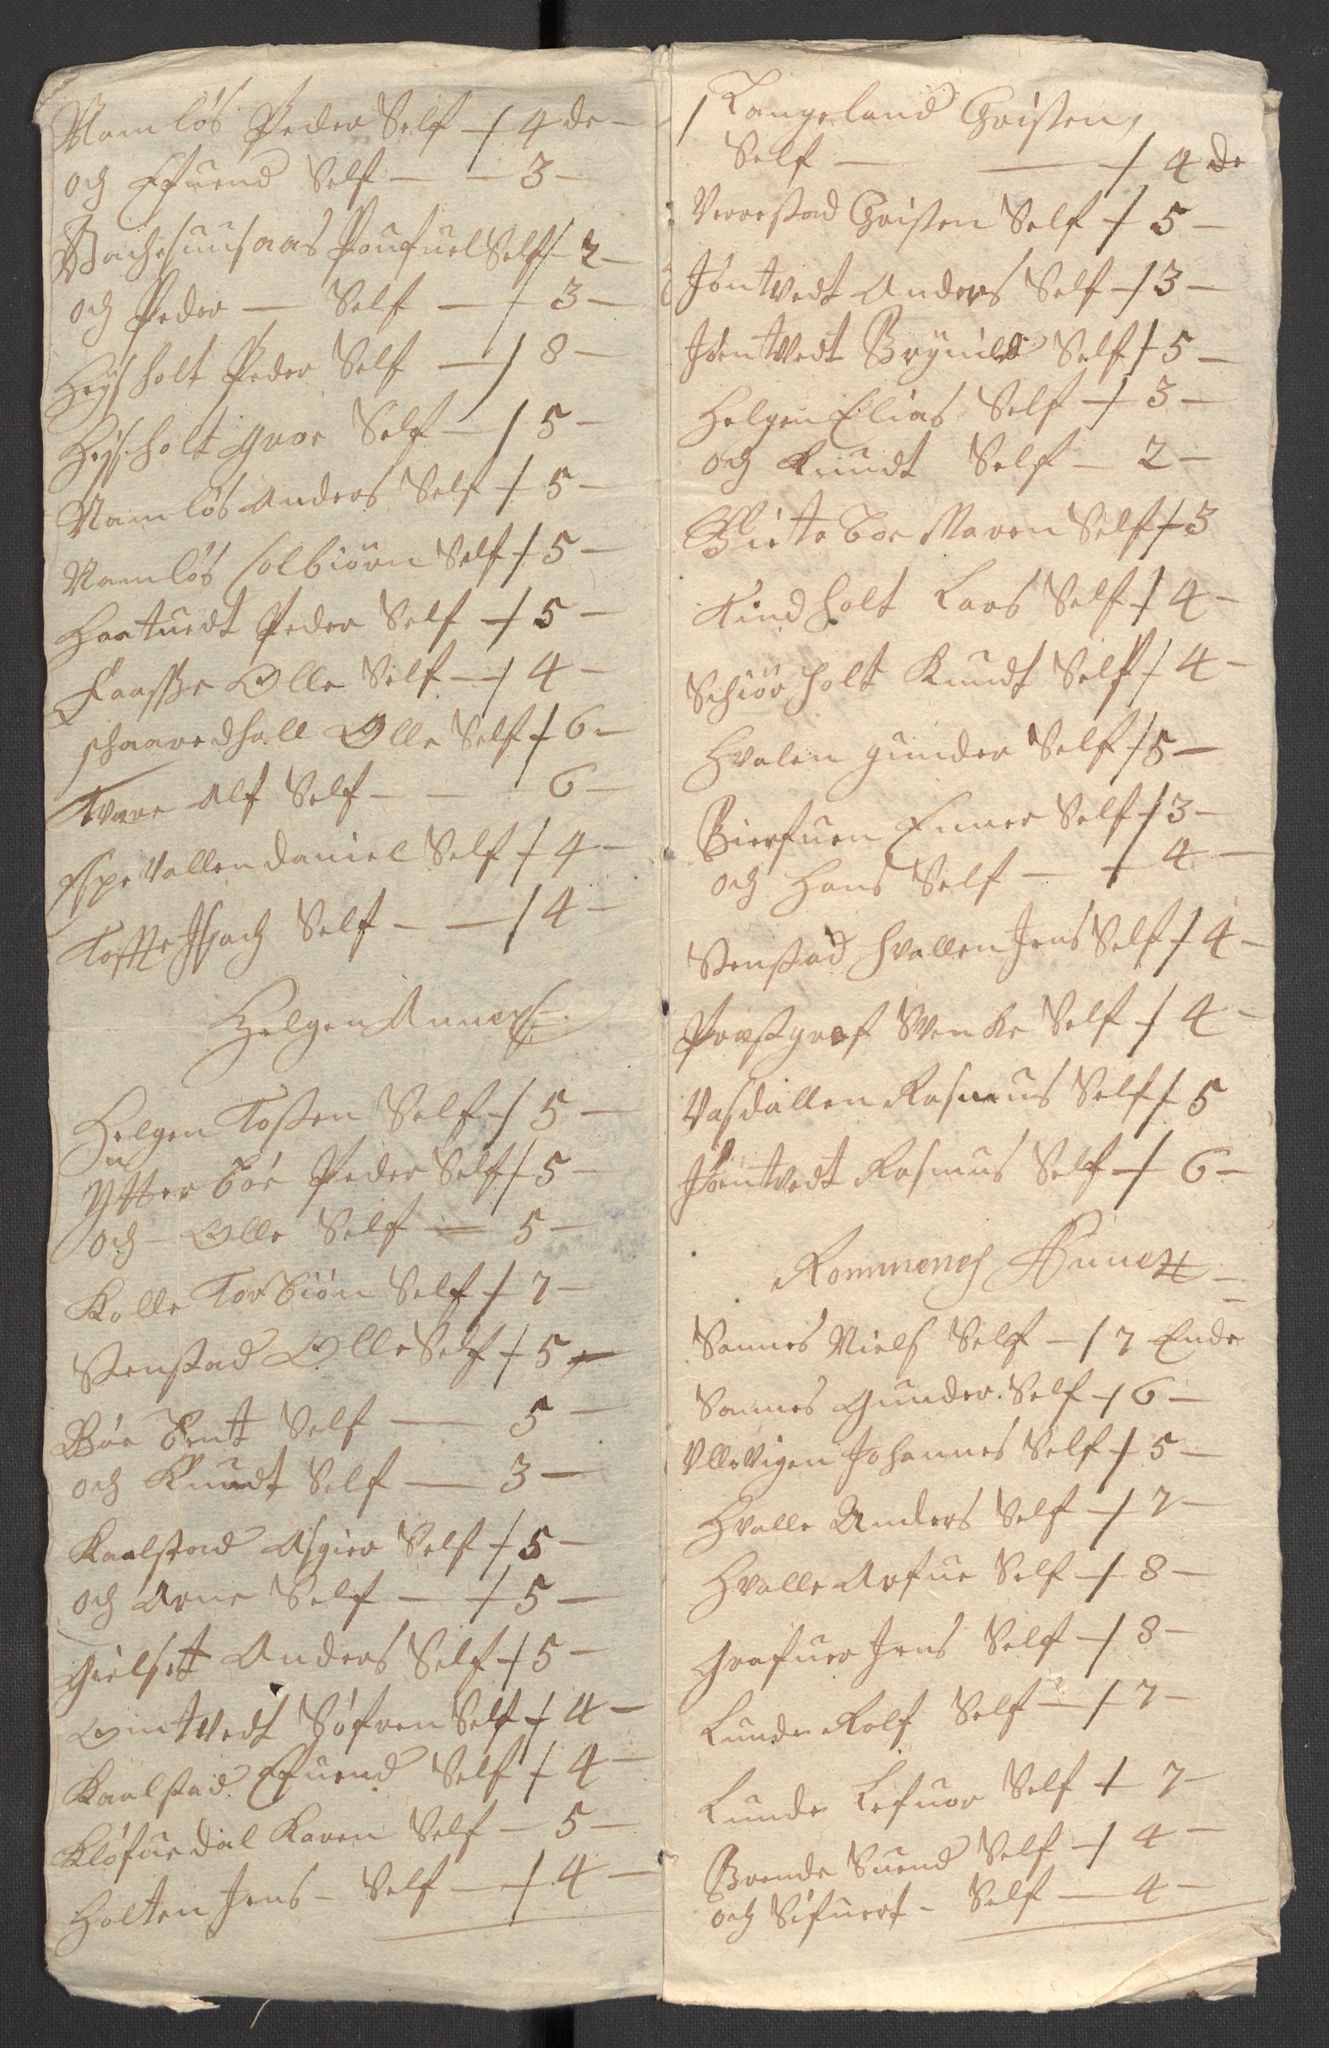 Namløs Peder Self — / 4 de —
och Efuend Self — — 3 —
Bachesuusaas Poufuel Self / 2 —
och Peder — Self — / 3 —
Høyscholt Peder Self — / 8 —
Høyscholt Gvor Self — / 5 —
Namløs Anders Self / 5 —
Namløs Colbiørn Self / 5 —
Haatuedt Peder Self / 5 —
Faasse Olle Self — / 4 —
schaaredhall Olle Self / 6 —
Tvare Alf Self — — 6 —
Espevallen Daniel Self / 4 —
Toffte Isach Self — — / 4 —
Helgen Annex
Helgen Tosten Self / 5 —
Ytterbøe Peder Self / 5 —
och — Olle Self — 5 —
Kolle Torbiøn Self / 7 —
Stenstad Olle Self / 5 —
Bøe Bent Self — 5 —
och Knudt Self — 3 —
Kaalstad Asgier Self / 5 —
och Arne Self — / 5 —
Gielset Anders Self / 5 —
Omtvedt Søfren Self / 4 —
Kaalstad Efuend Self / 4 —
Kløfuedal Karen Self — 5 —
Holten Jens — Self — / 4 —
/ Langeland Christen,
Self — — / 4 de
Verrestad Christen Self / 5 —
Jøntvedt Anders Self / 3 —
Jøentvedt Brynild Self / 5 —
Helgen Elias Self / 3 —
och Knudt Self — 2 —
Bietebøe Maren Self / 3
Tindholt Lars Self / 4 —
Schiørholt Knudt Self / 4 —
Hvalen Gunder Self / 5 —
Bierfuen Enner Self / 3 —
och Hans Self — / 4 —
Stenstad Hvallen Jens Self / 4 —
Præstgref Svenke Self / 4 —
Vasdallen Rasmus Self / 5
Jøentvedt Rasmus Self / 6 —
Romnenes Annex
Sannes Niels Self — / 7 Ende
Sannes Gunder Self / 6 —
Ullevigen Johannes Self / 5 —
Hvalle Anders Self / 7 —
Hvalle Arfue Self / 8 —
Grafuer Jens Self / 8 —
Lunde Rolf Self — / 7 —
Lunde Lefuor Self / 7 —
Brende Suend Self / 4 —
och Sifuert — Self — 4 —